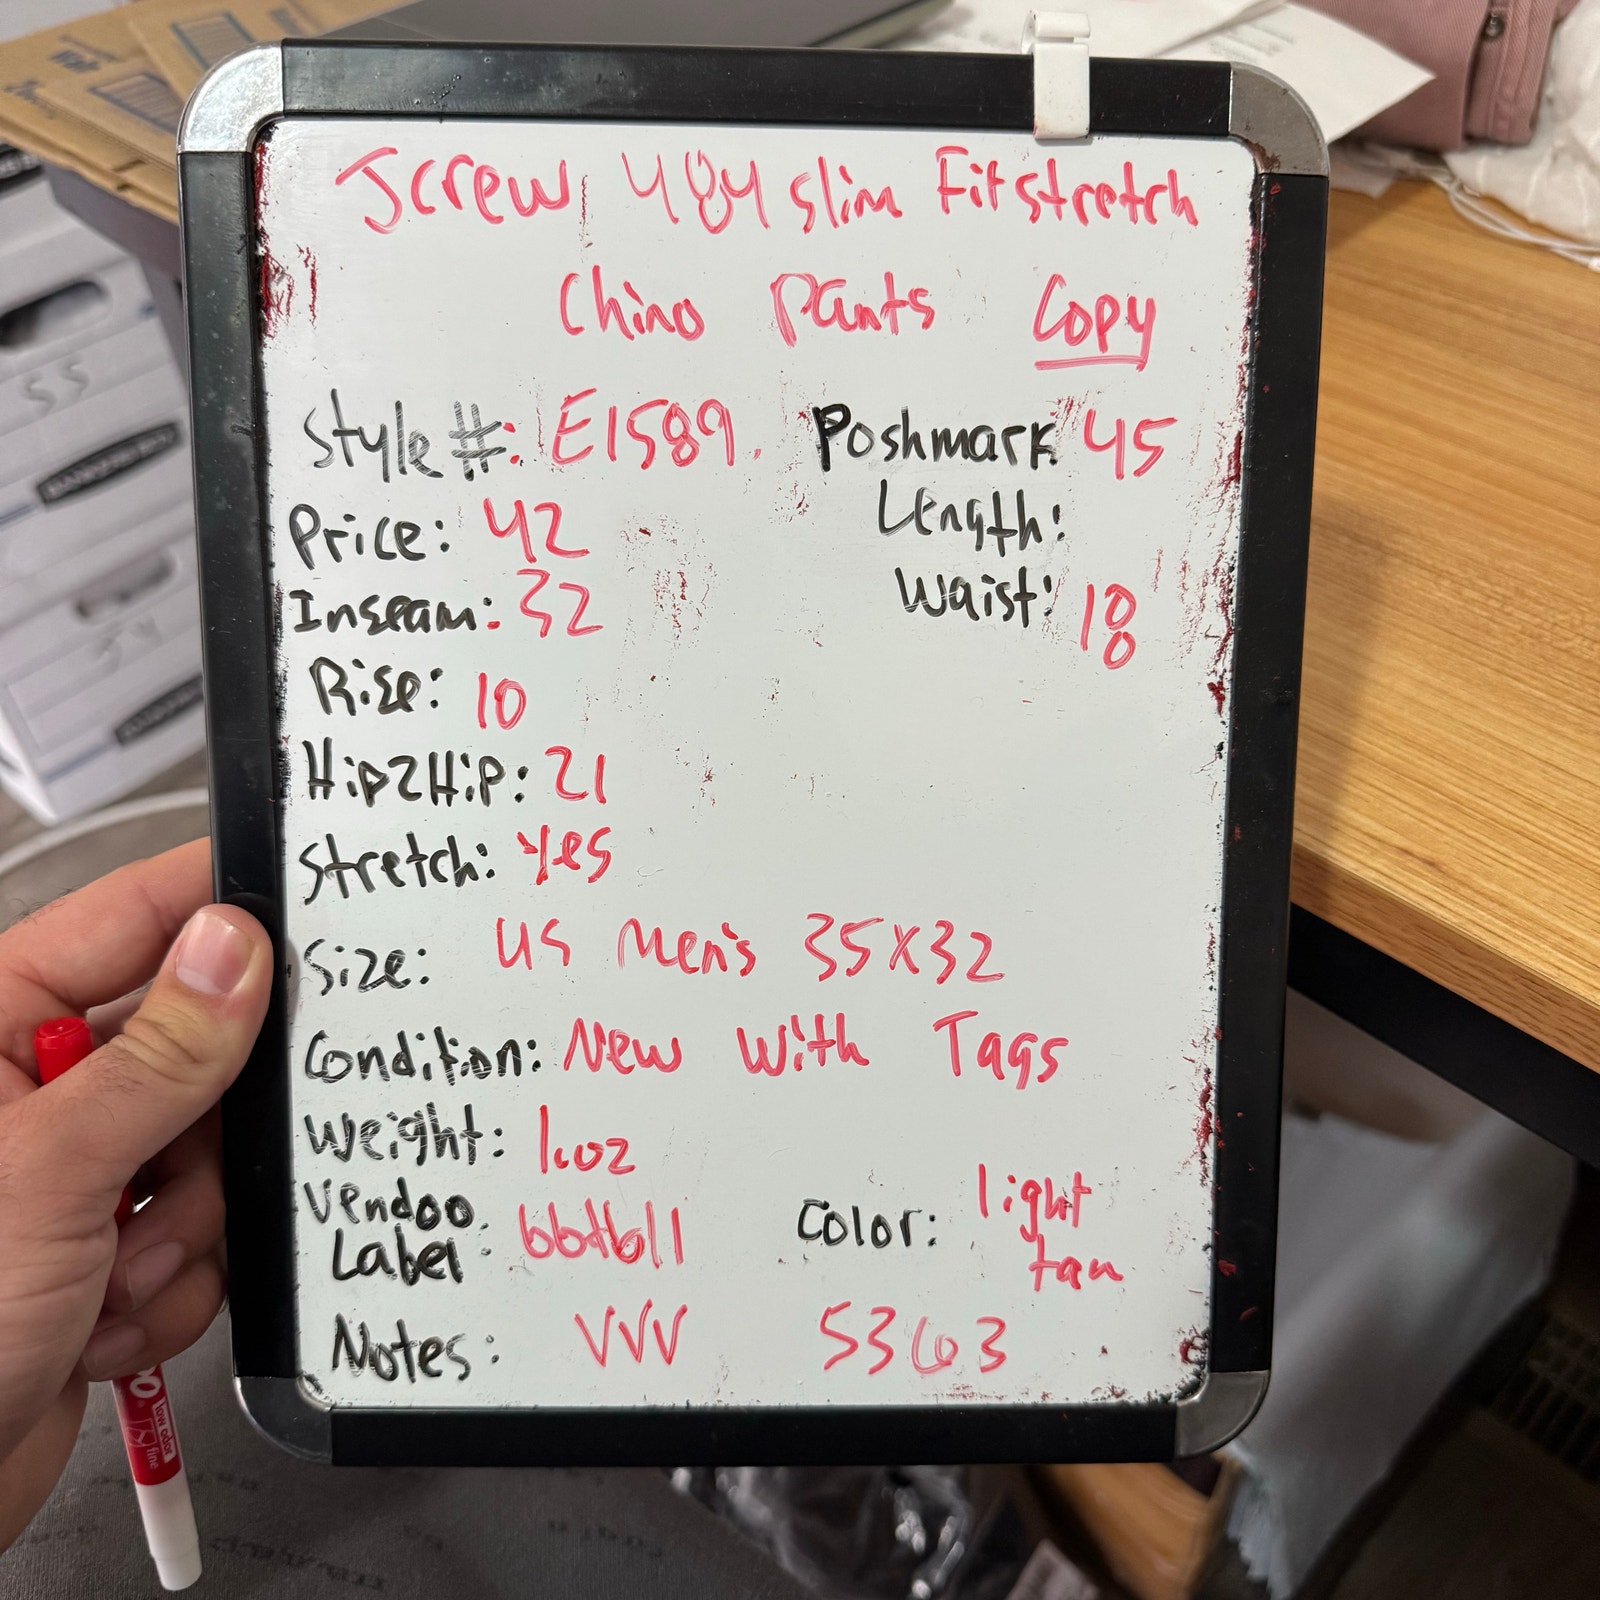 Jcrew 484 slim Fit stretch
Chino Pants Copy
Style #: E1589 Poshmark: 45
Price: 42 Length:
Inseam: 32 Waist: 18
Rise: 10
Hip2Hip: 21
Stretch: Yes
Size: US Men's 35X32
Condition: New With Tags
Weight: 1.oz
Vendoo Label: bbtb11 Color: light tan
Notes: VVV 5363
low odor
fine